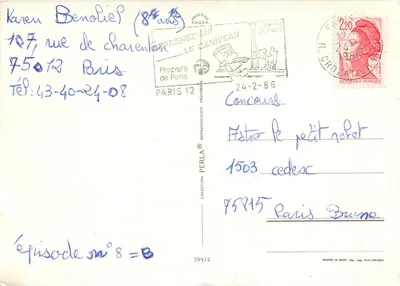 Karen Benoliel (8 ans)
107, rue de charenton
75012 Paris
Tél: 43-40-24-08
épisode n° 8 = B
LE CANIVEAU
Propreté
de Paris
PARIS 12
24-2-86
2,20
Concours
Astor le petit robot
1503 cedesc
75815 Paris Brune
COLLECTION PERLA® REPRODUCTION
399/4